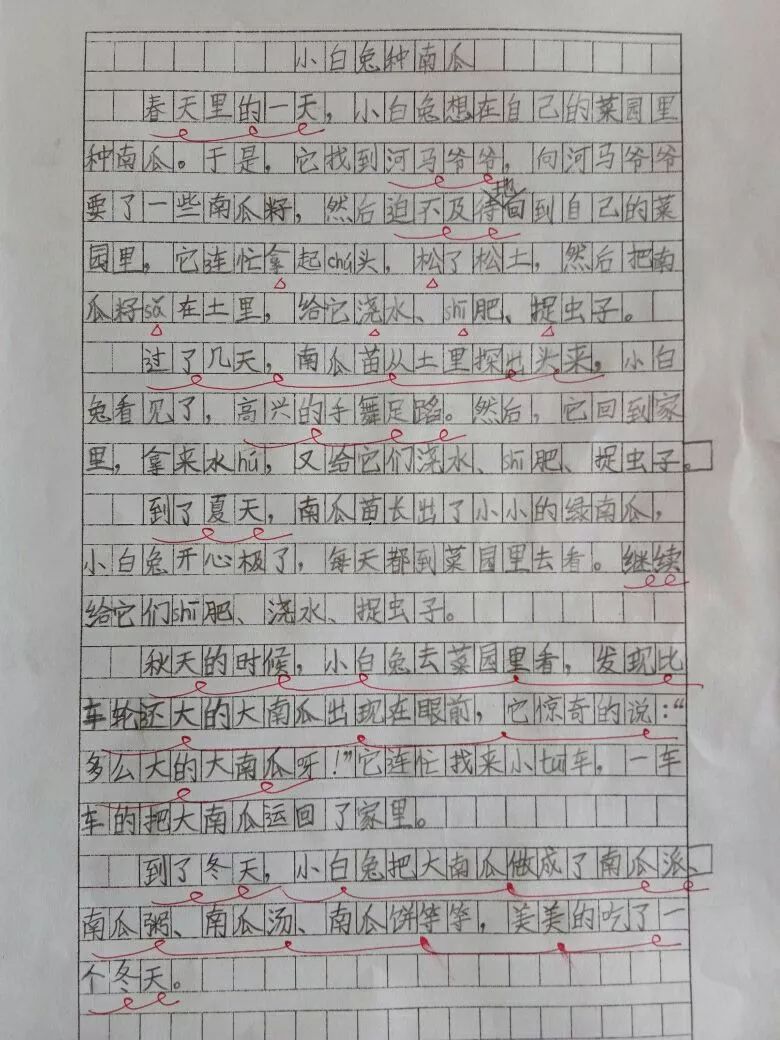 小白兔种南瓜
春天里的一天，小白兔想在自己的菜园里
种南瓜。于是，它找到河马爷爷，向河马爷爷
要了一些南瓜籽，然后迫不及待地回到自己的菜
园里，它连忙拿起chú头，松了松土，然后把南
瓜籽sǎ在土里，给它浇水、shī肥、捉虫子。
过了几天，南瓜苗从土里探出头来，小白
兔看见了，高兴的手舞足蹈。然后，它回到家
里，拿来水hú，又给它们浇水、shī肥、捉虫子。
到了夏天，南瓜苗长出了小小的绿南瓜，
小白兔开心极了，每天都到菜园里去看。继续
给它们shī肥、浇水、捉虫子。
秋天的时候，小白兔去菜园里看，发现比
车轮还大的大南瓜出现在眼前，它惊奇的说：“
多么大的大南瓜呀！”它连忙找来小tuī车，一车
车的把大南瓜运回了家里。
到了冬天，小白兔把大南瓜做成了南瓜派、
南瓜粥、南瓜汤、南瓜饼等等，美美的吃了一
个冬天。